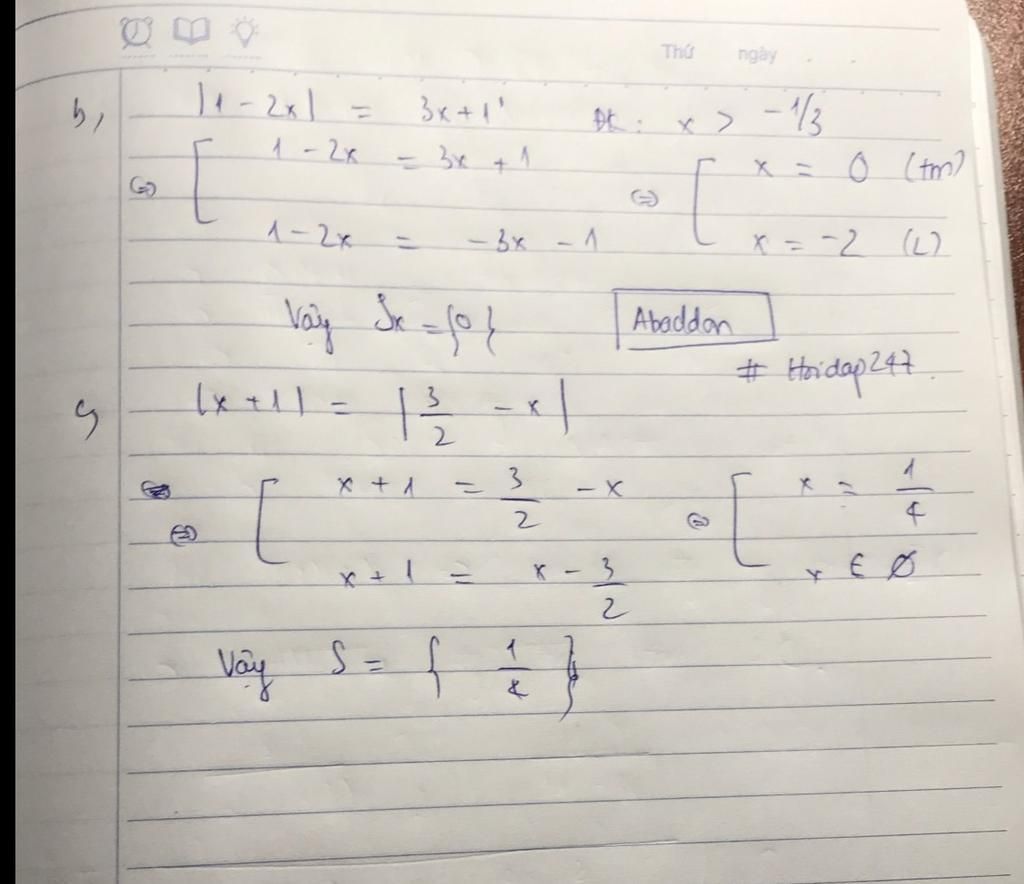 Thứ ngày
b, |1 - 2x| = 3x + 1 ĐK: x > -1/3
⇔ [ 1 - 2x = 3x + 1 ⇔ [ x = 0 (tm)
1 - 2x = -3x - 1 x = -2 (L)
Vậy Sx = {0} Abaddon
# Hoidap247.
c, |x + 1| = |3/2 - x|
⇔ [ x + 1 = 3/2 - x ⇔ [ x = 1/4
x + 1 = x - 3/2 x ∈ Ø
Vậy S = { 1/4 }